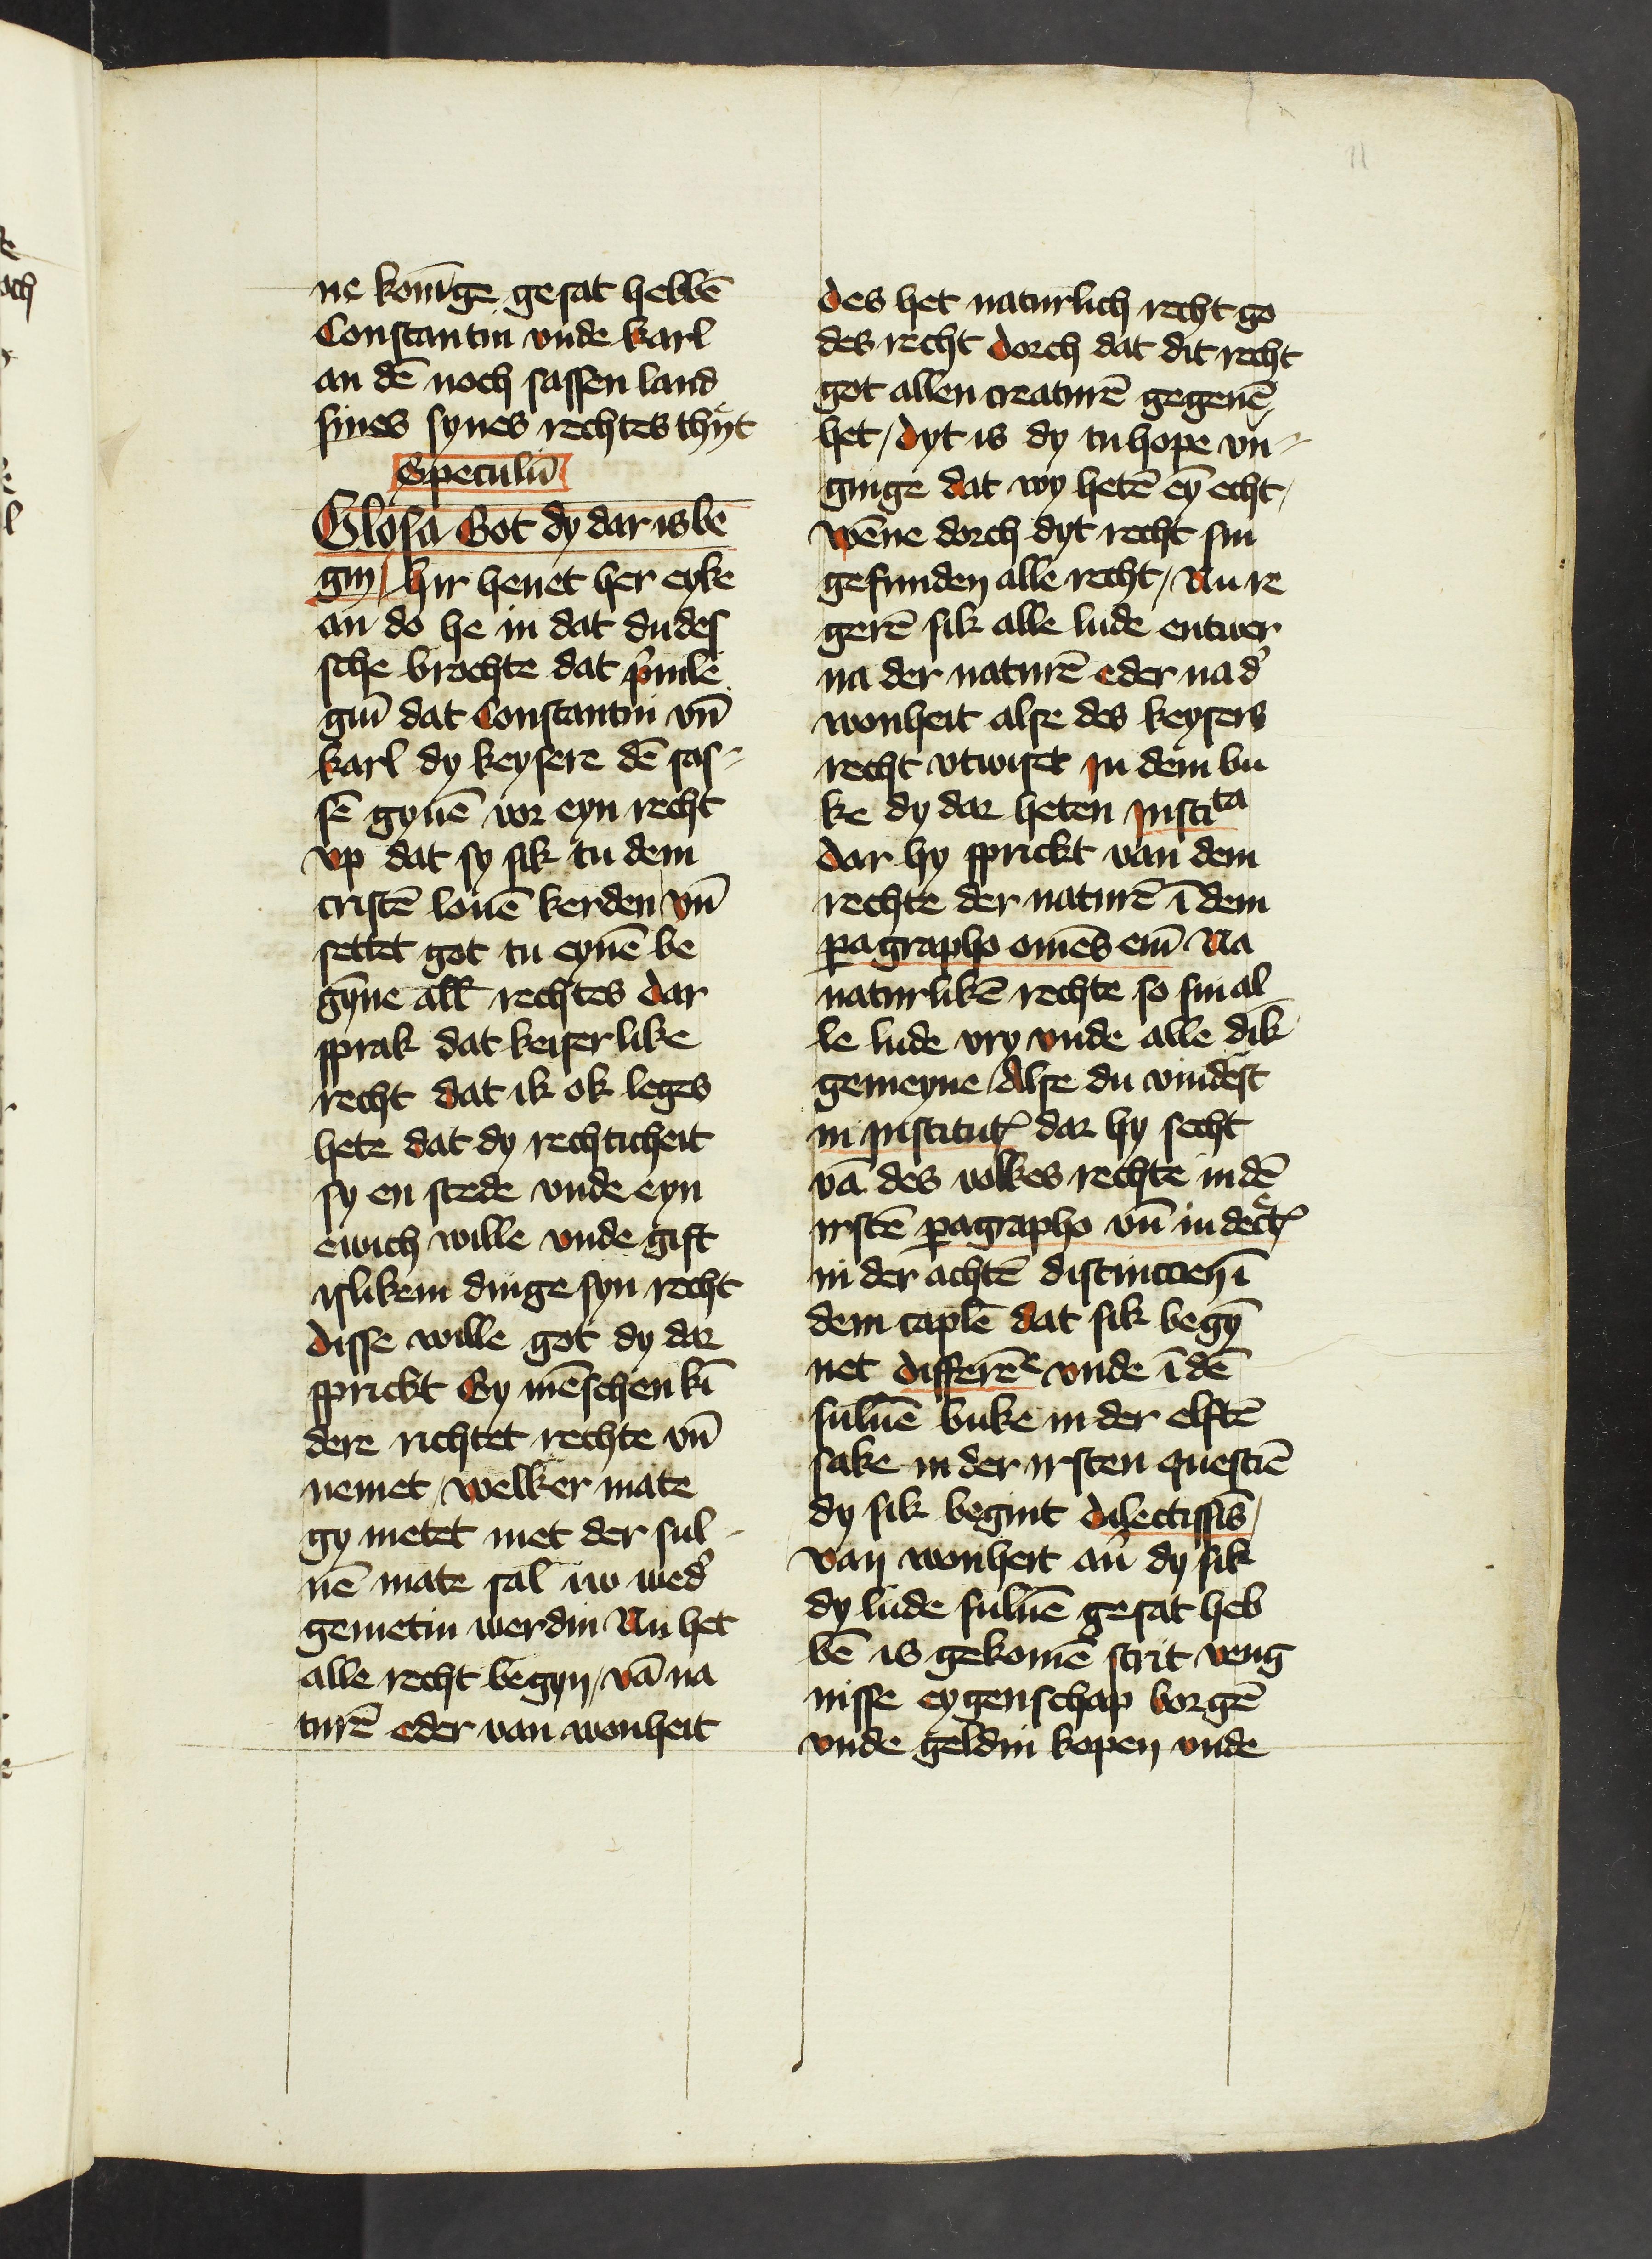 11
ne konīge gesat hebbē
Constantin vnde karl
an dē noch sassen land
sines synes rechtes thyͤt
Speculū
Glosa Got dy dar is be
gin / hir heuet her eyke
an do he in dat dudes
sche brochte dat pͥuile
giū dat Constantin vn̄
karl dy keysere dē sas-
sē gyuē vor eyn recht
vp dat sy sik tu dem
cristē louē kerden vn̄
settet got tu eynē be
gȳne all̄ rechtes dar
sprak dat keiserlike
recht dat ik ok leges
hete dat dy rechticheit
sy en stede vnde eyn
ewich wille vnde gift
islikem dinge syn recht
disse wille got dy dar
sprickt Gy mēschen kī
dere richtet rechte vn̄
nemet / welker mate
gy metet met der sul-
uē mate sal iw wed᾽
gemetin werdin Nu het
alle recht begyn / vā na
turē eder van wonheit
des het naturlich recht go
des recht dorch dat dit recht
got allen creaturē gegeuē
het / dyt is dy tuhope vu-
ginge dat wy hetē eȳ echt /
wēne dorch dyt recht sin
gefunden alle recht / Nu re
gerē sik alle lude entwer
na der naturē eder na d᾽
wonheit alse des keysers
recht vtwiset In dem bu
ke dy dar heten Instiᵗᵃ
dar hy sprickt van dem
rechte der naturē ī dem
ꝑagrapho om̄es eīm Na
naturlikē rechte so sin al
le lude vry vnde alle dīk
gemeyne / Alse du vindest
in Institut᾽ dar hy secht
vā des volkes rechte in dē
irstē ꝑagrapho vn̄ in decͤt᾽
in der achtē distinctien ī
dem caplē dat sik begȳ
net differēͤ vnde ī dē
suluē buke in der elftē
sake in der irsten questiē
dy sik begint dilectissīs /
van wonheit au᾽ dy sik
dy lude suluē gesat heb
bē is gekomē strit veng
nisse eygenschap borgē
vnde geldin kopen vnde